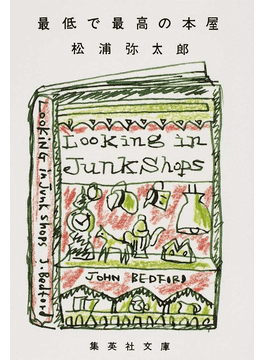 最低で最高の本屋
松浦弥太郎
Looking in
Junk Shops
JOHN BEDFORD
Looking in Junk Shops J. Bedford
集英社文庫